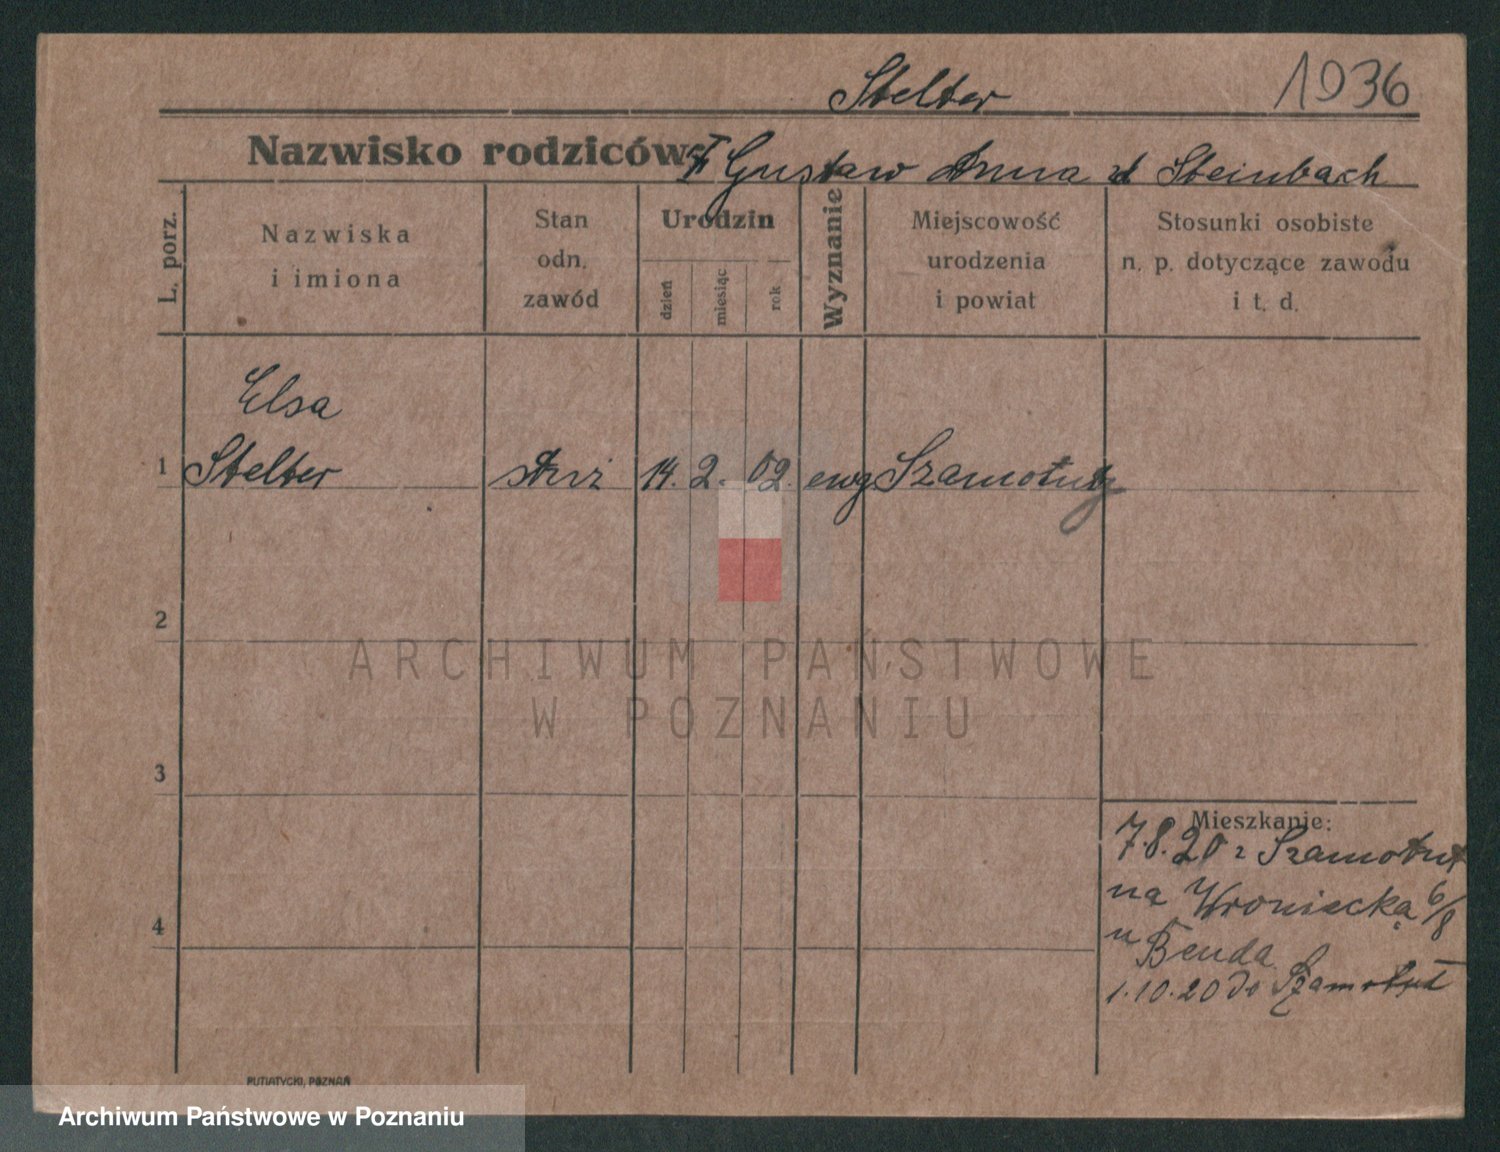 Stelter
1036
Nazwisko rodziców: Gustaw Anna zd Steinbach
L. porz.
Nazwiska
i imiona
Stan
odn.
zawód
Urodzin
dzień
miesiąc
rok
Wyznanie
Miejscowość
urodzenia
i powiat
Stosunki osobiste
n. p. dotyczące zawodu
i t. d.
Elsa
1 Stelter 14. 2. 02. ewg Szamotuły
2
ARCHIWUM PAŃSTWOWE
W POZNANIU
3
Mieszkanie:
7.8.20 z Szamotuł
na Wroniecką 6/8
u Benda
4
1.10.20 do Szamotuł
PUTIATYCKI, POZNAŃ
Archiwum Państwowe w Poznaniu